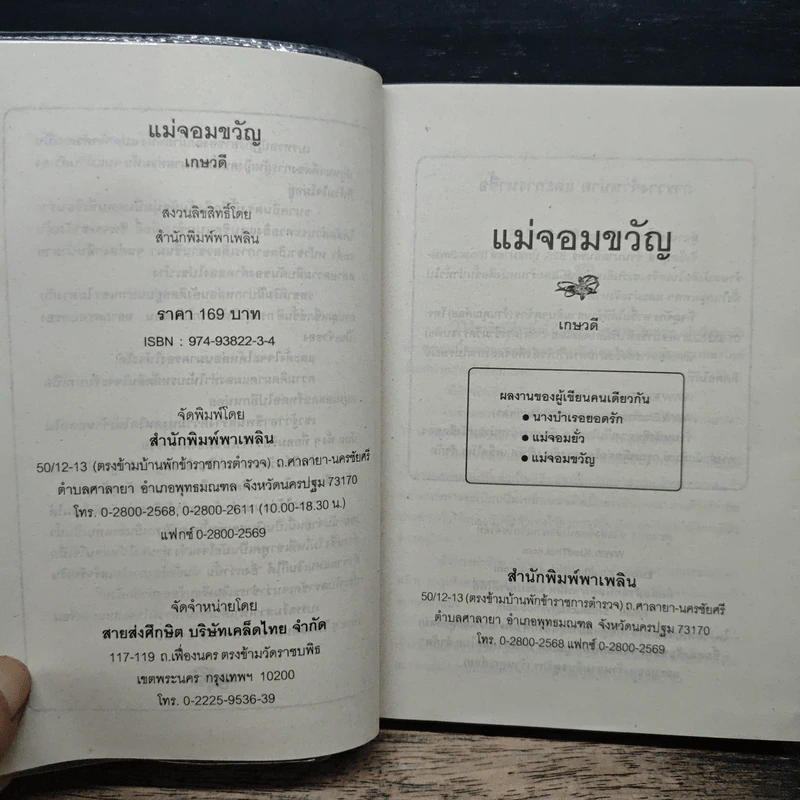 แม่จอมขวัญ
เกษวดี
สงวนลิขสิทธิ์โดย
สำนักพิมพ์พาเพลิน
ราคา 169 บาท
ISBN : 974-93822-3-4
จัดพิมพ์โดย
สำนักพิมพ์พาเพลิน
50/12-13 (ตรงข้ามบ้านพักข้าราชการตำรวจ) ถ.ศาลายา-นครชัยศรี
ตำบลศาลายา อำเภอพุทธมณฑล จังหวัดนครปฐม 73170
โทร. 0-2800-2568, 0-2800-2611 (10.00-18.30 น.)
แฟกซ์ 0-2800-2569
จัดจำหน่ายโดย
สายส่งศึกษิต บริษัทเคล็ดไทย จำกัด
117-119 ถ.เฟื่องนคร ตรงข้ามวัดราชบพิธ
เขตพระนคร กรุงเทพฯ 10200
โทร. 0-2225-9536-39
แม่จอมขวัญ
เกษวดี
ผลงานของผู้เขียนคนเดียวกัน
● นางบำเรอยอดรัก
● แม่จอมยั่ว
● แม่จอมขวัญ
สำนักพิมพ์พาเพลิน
50/12-13 (ตรงข้ามบ้านพักข้าราชการตำรวจ) ถ.ศาลายา-นครชัยศรี
ตำบลศาลายา อำเภอพุทธมณฑล จังหวัดนครปฐม 73170
โทร. 0-2800-2568 แฟกซ์ 0-2800-2569